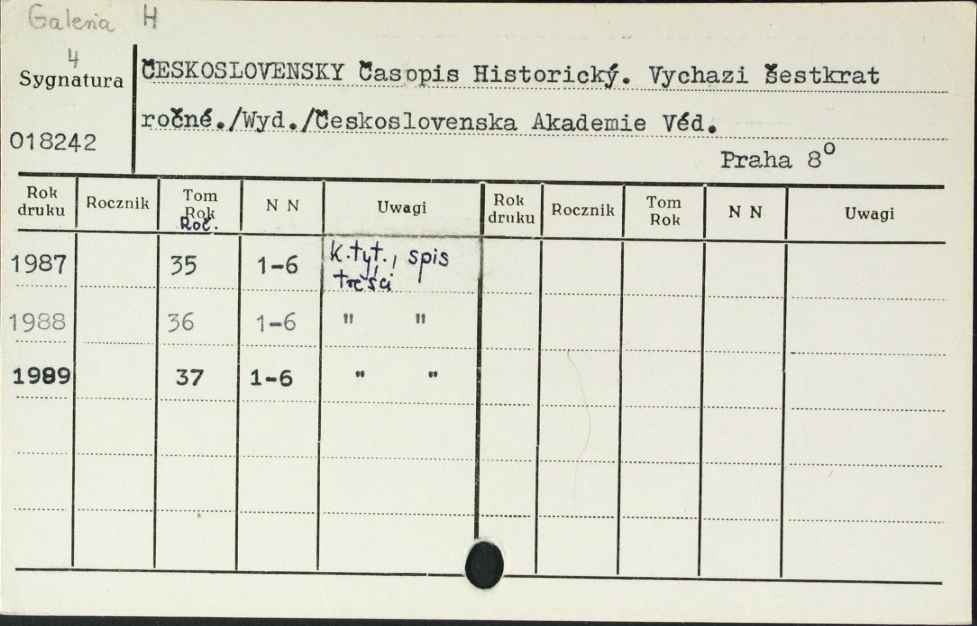 Galeria H
4
Sygnatura
018242
ČESKOSLOVENSKY Časopis Historický. Vychazi Šestkrat
ročné./Wyd./Československa Akademie Véd.
Praha 8º
Rok druku Rocznik Tom Rok Roč. N N Uwagi Rok druku Rocznik Tom Rok N N Uwagi
1987 35 1-6 K.tyt., spis
treści
1988 36 1-6 " "
1989 37 1-6 " "